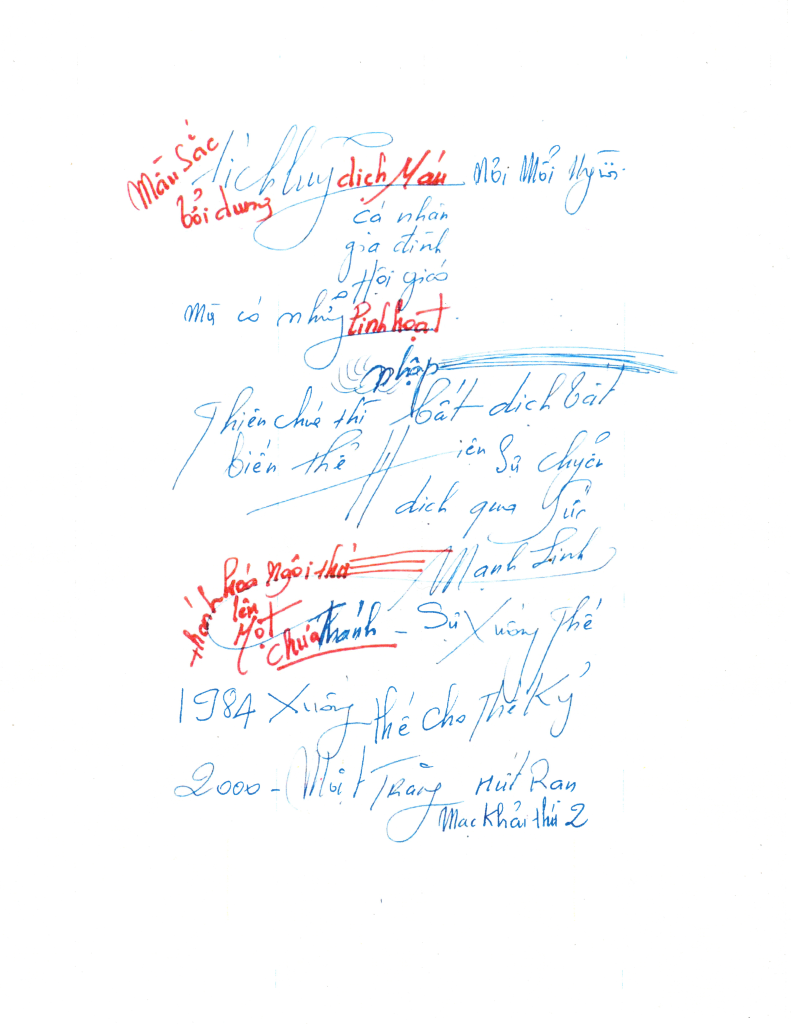 Mầu Sắc
bởi dương
dịch Máu Nơi Mổi Người
cá nhân
gia đình
Hội giáo
Mà có những linh hoạt
nhập
Thiên chúa thì bất dịch bất
biến thể
Sự chuyển
dịch qua Sức
Mạnh Linh
thánh hoá Ngôi thứ
lên
Một
chúa thánh - Sự Xuống Thế
1984 Xuống thế cho Thế Kỷ
2000 - Một Trăng Hút Ran
Mạc Khải thứ 2